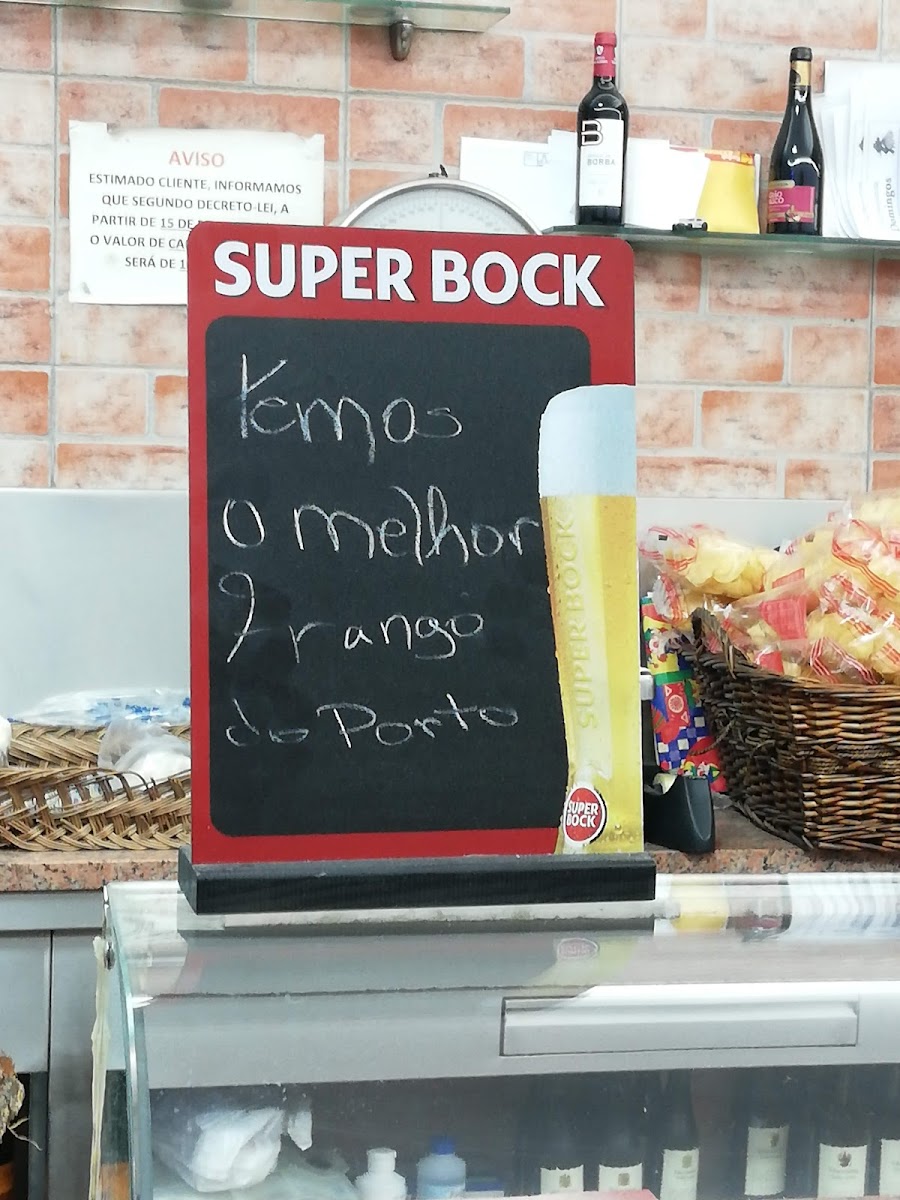 AVISO
ESTIMADO CLIENTE, INFORMAMOS
QUE SEGUNDO DECRETO-LEI, A
PARTIR DE 15 DE
O VALOR DE
SERÁ DE
BORBA
Domingos
SUPER BOCK
Temos
o melhor
frango
do Porto
SUPER BOCK
SUPER
BOCK